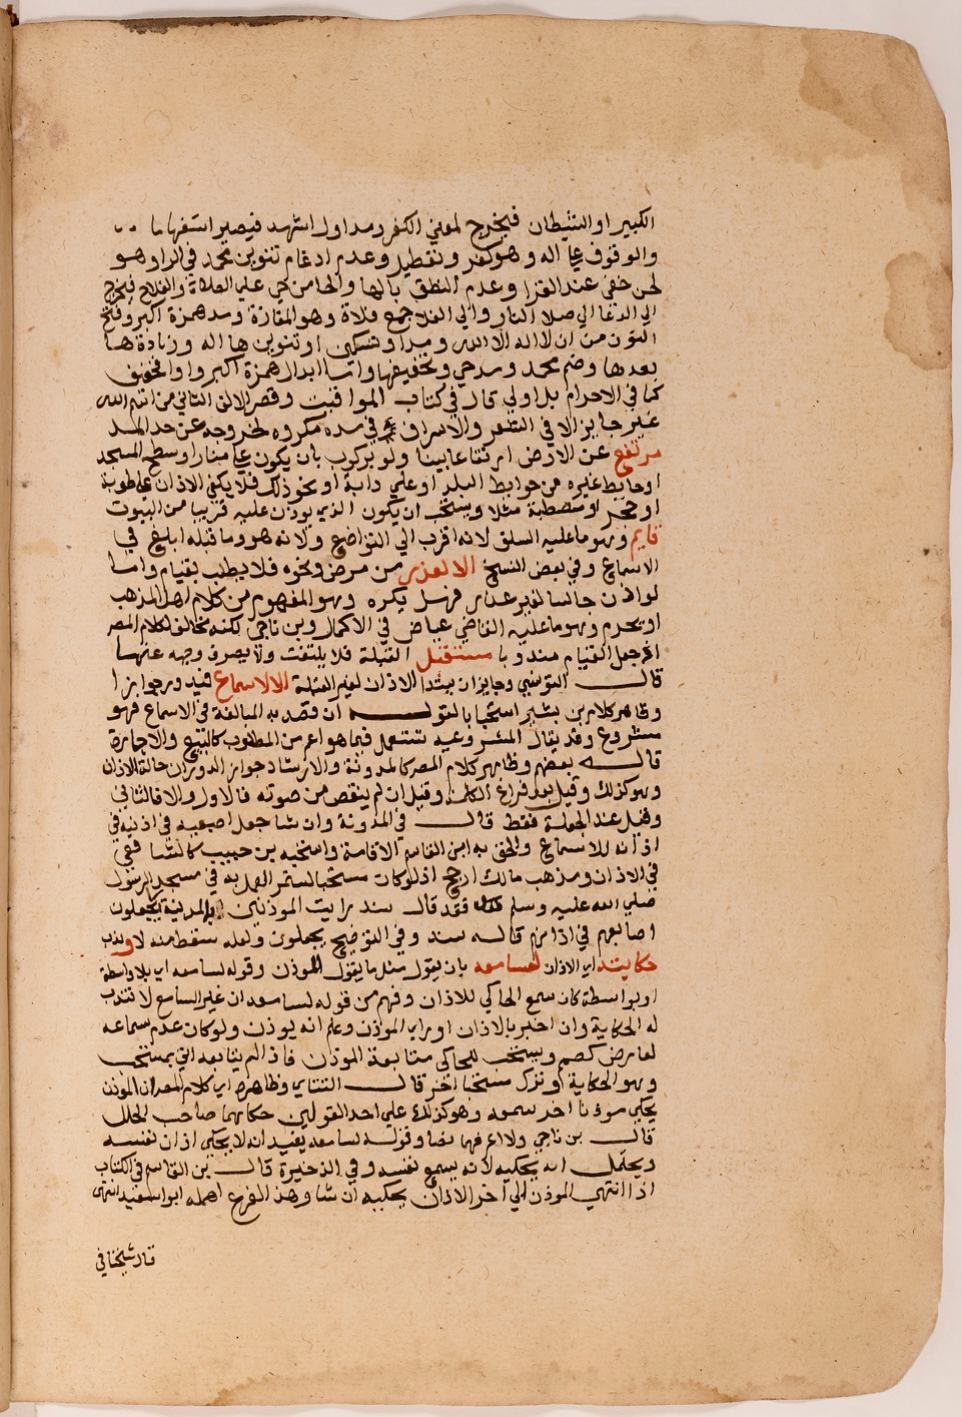 الكبير او الشيطان فيخرج لمعني الكفر ومد اول اشهد فيصير استفهاما
والوقوف علي اله وهو كفر وتعطيل وعدم ادغام تنوين محمد في الرا وهو
لحن خفي عند القرا وعدم النطق بالها والحا من حي علي الصلاة والفلاح فيخرج
الي الدعا الي صلا النار والي الفلا جمع فلاة وهو المفازة ومد همزة اكبر وفتح
النون من ان لا اله الا الله ومد او تسكين او تنوين ها اله وزيادة ها
بعدها وضم محمد ومد حي وتخفيفها واما ابدال همزة اكبر واوا فخفيف
كما في الاحرام بل اولي قال في كتاب المواقيت وقصر الالف الثاني من اسم الله
غير جايز الا في الشعر والاسراف في مده مكروه لخروجه عن حد المد
مرتفع عن الارض ارتفاعا بينا ولو بركوب بان يكون علي منار او سطح المسجد
او حايط غيره من حوايط البلد او علي دابة او نحو ذلك فلا يكفي الاذان علي طوبة
او حجر او مصطبة مثلا ويستحب ان يكون الذي يوذن عليه قريبا من البيوت
قايم وهو ما عليه السلف لانه اقرب الي التواضع ولانه هو وما قبله ابلغ في
الاسماع وفي بعض النسخ الا لعذر من مرض ونحوه فلا يطلب بقيام واما
لو اذن جالسا لغير عذر فهل يكره وهو المفهوم من كلام اهل المذهب
او يحرم وهو ما عليه القاضي عياض في الاكمال وبن ناجي لكنه مخالف لكلام المص
اذ جعل القيام مندوبا مستقبل القبلة فلا يلتفت ولا يصرف وجهه عنها
قال التونسي وجايز ان يبتدا الاذان لغير القبلة الا لاسماع فيدور جوازا
وظاهر كلام بن بشير استحبابا لقوله ان قصد به المبالغة في الاسماع فهو
مشروع وقد يقال المشروعية تستعمل فيما هو اعم من المطلوب كالبيع والاجارة
قاله بعضهم وظاهر كلام المص كالمدونة والارشاد جواز الدوران حالة الاذان
وهو كذلك وقيل بعد فراغ الكلمة وقيل ان لم ينقص من صوته فالاول والا فالثاني
وقيل عند الحيعلة فقط قال في المدونة وان شا جعل اصبعيه في اذنيه في
اذانه للاسماع والحق به ابن القاسم الاقامة واستحبه بن حبيب كالشافعي
في الاذان ومذهب مالك ارجح اذ لو كان مستحبا لستمر العمل به في مسجد الرسول
صلي الله عليه وسلم فقد قال سند رايت الموذنين بالمدينة يجعلون
اصابعهم في اذانهم قاله سند وفي التوضيح يجعلون ولعله سقط منه لا وندب
حكايته اي الاذان لسامعه بان يقول مثل ما يقول الموذن وقوله لسامعه اي بلا واسطة
او بواسطة كان سمع الحاكي للاذان وفهم من قوله لسامعه ان غير السامع لا تندب
له الحكاية وان اخبر بالاذان او راي الموذن وعلم انه يوذن ولو كان عدم سماعه
لعارض كصمم ويستحب للحاكي متابعة الموذن فاذا لم يتابعه اتي بمستحب
وهو الحكاية وترك مستحبا اخر قال التتاي وظاهره اي كلام المص ان الموذن
يحكي موذنا اخر سمعه وهو كذلك علي احد القولين حكاهما صاحب الحلل
قال بن ناجي ولا اعرفهما نصا وقوله لسامعه يفيد انه لا يحكي اذان نفسه
ويحتمل انه يحكيه لانه يسمع نفسه وفي الذخيرة قال بن القاسم في الكتاب
اذا انتهي الموذن الي اخر الاذان يحكيه ان شا وهذا الفرع اهمله ابو سعيد انتهي
قال شيخنا في